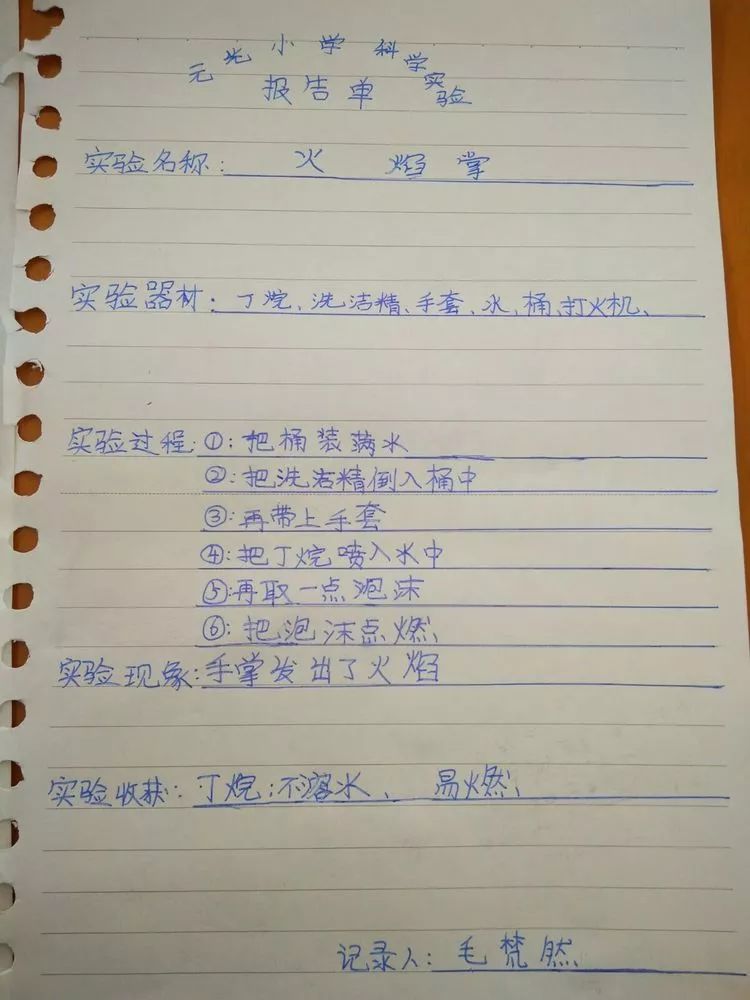 元光小学科学实验
报告单
实验名称：火焰掌
实验器材：丁烷、洗洁精、手套、水、桶、打火机、
实验过程：①：把桶装满水
②：把洗洁精倒入桶中
③：再带上手套
④：把丁烷喷入水中
⑤：再取一点泡沫
⑥：把泡沫点燃
实验现象：手掌发出了火焰
实验收获：丁烷：不溶水、易燃、
记录人：毛梵然